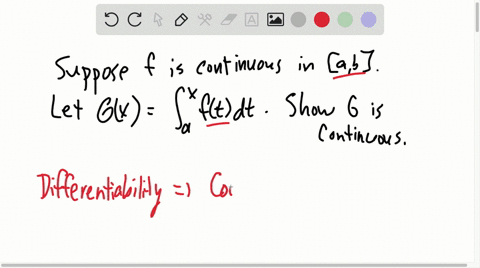 Suppose f is continuous in [a,b].
Let G(x) = ∫_a^x f(t)dt. Show G is
continuous.
Differentiability => Co